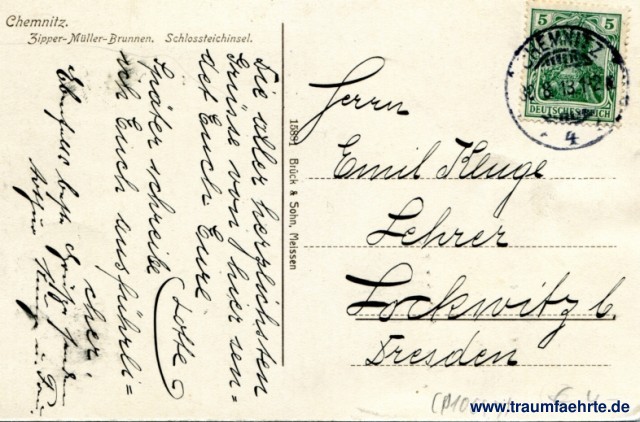 Chemnitz.
Zipper-Müller-Brunnen. Schlossteichinsel.
Die aller herzlichsten
Grüsse von hier sen=
det Euch Eure
Lotte
Später schreibe
ich Euch ausführli=
cher!
Ebenfalls
Grüße
15891 Brück & Sohn, Meissen
Herrn
Emil Kluge
Lehrer
Lockwitz b.
Dresden
5 5
DEUTSCHES REICH
CHEMNITZ
4
www.traumfaehrte.de